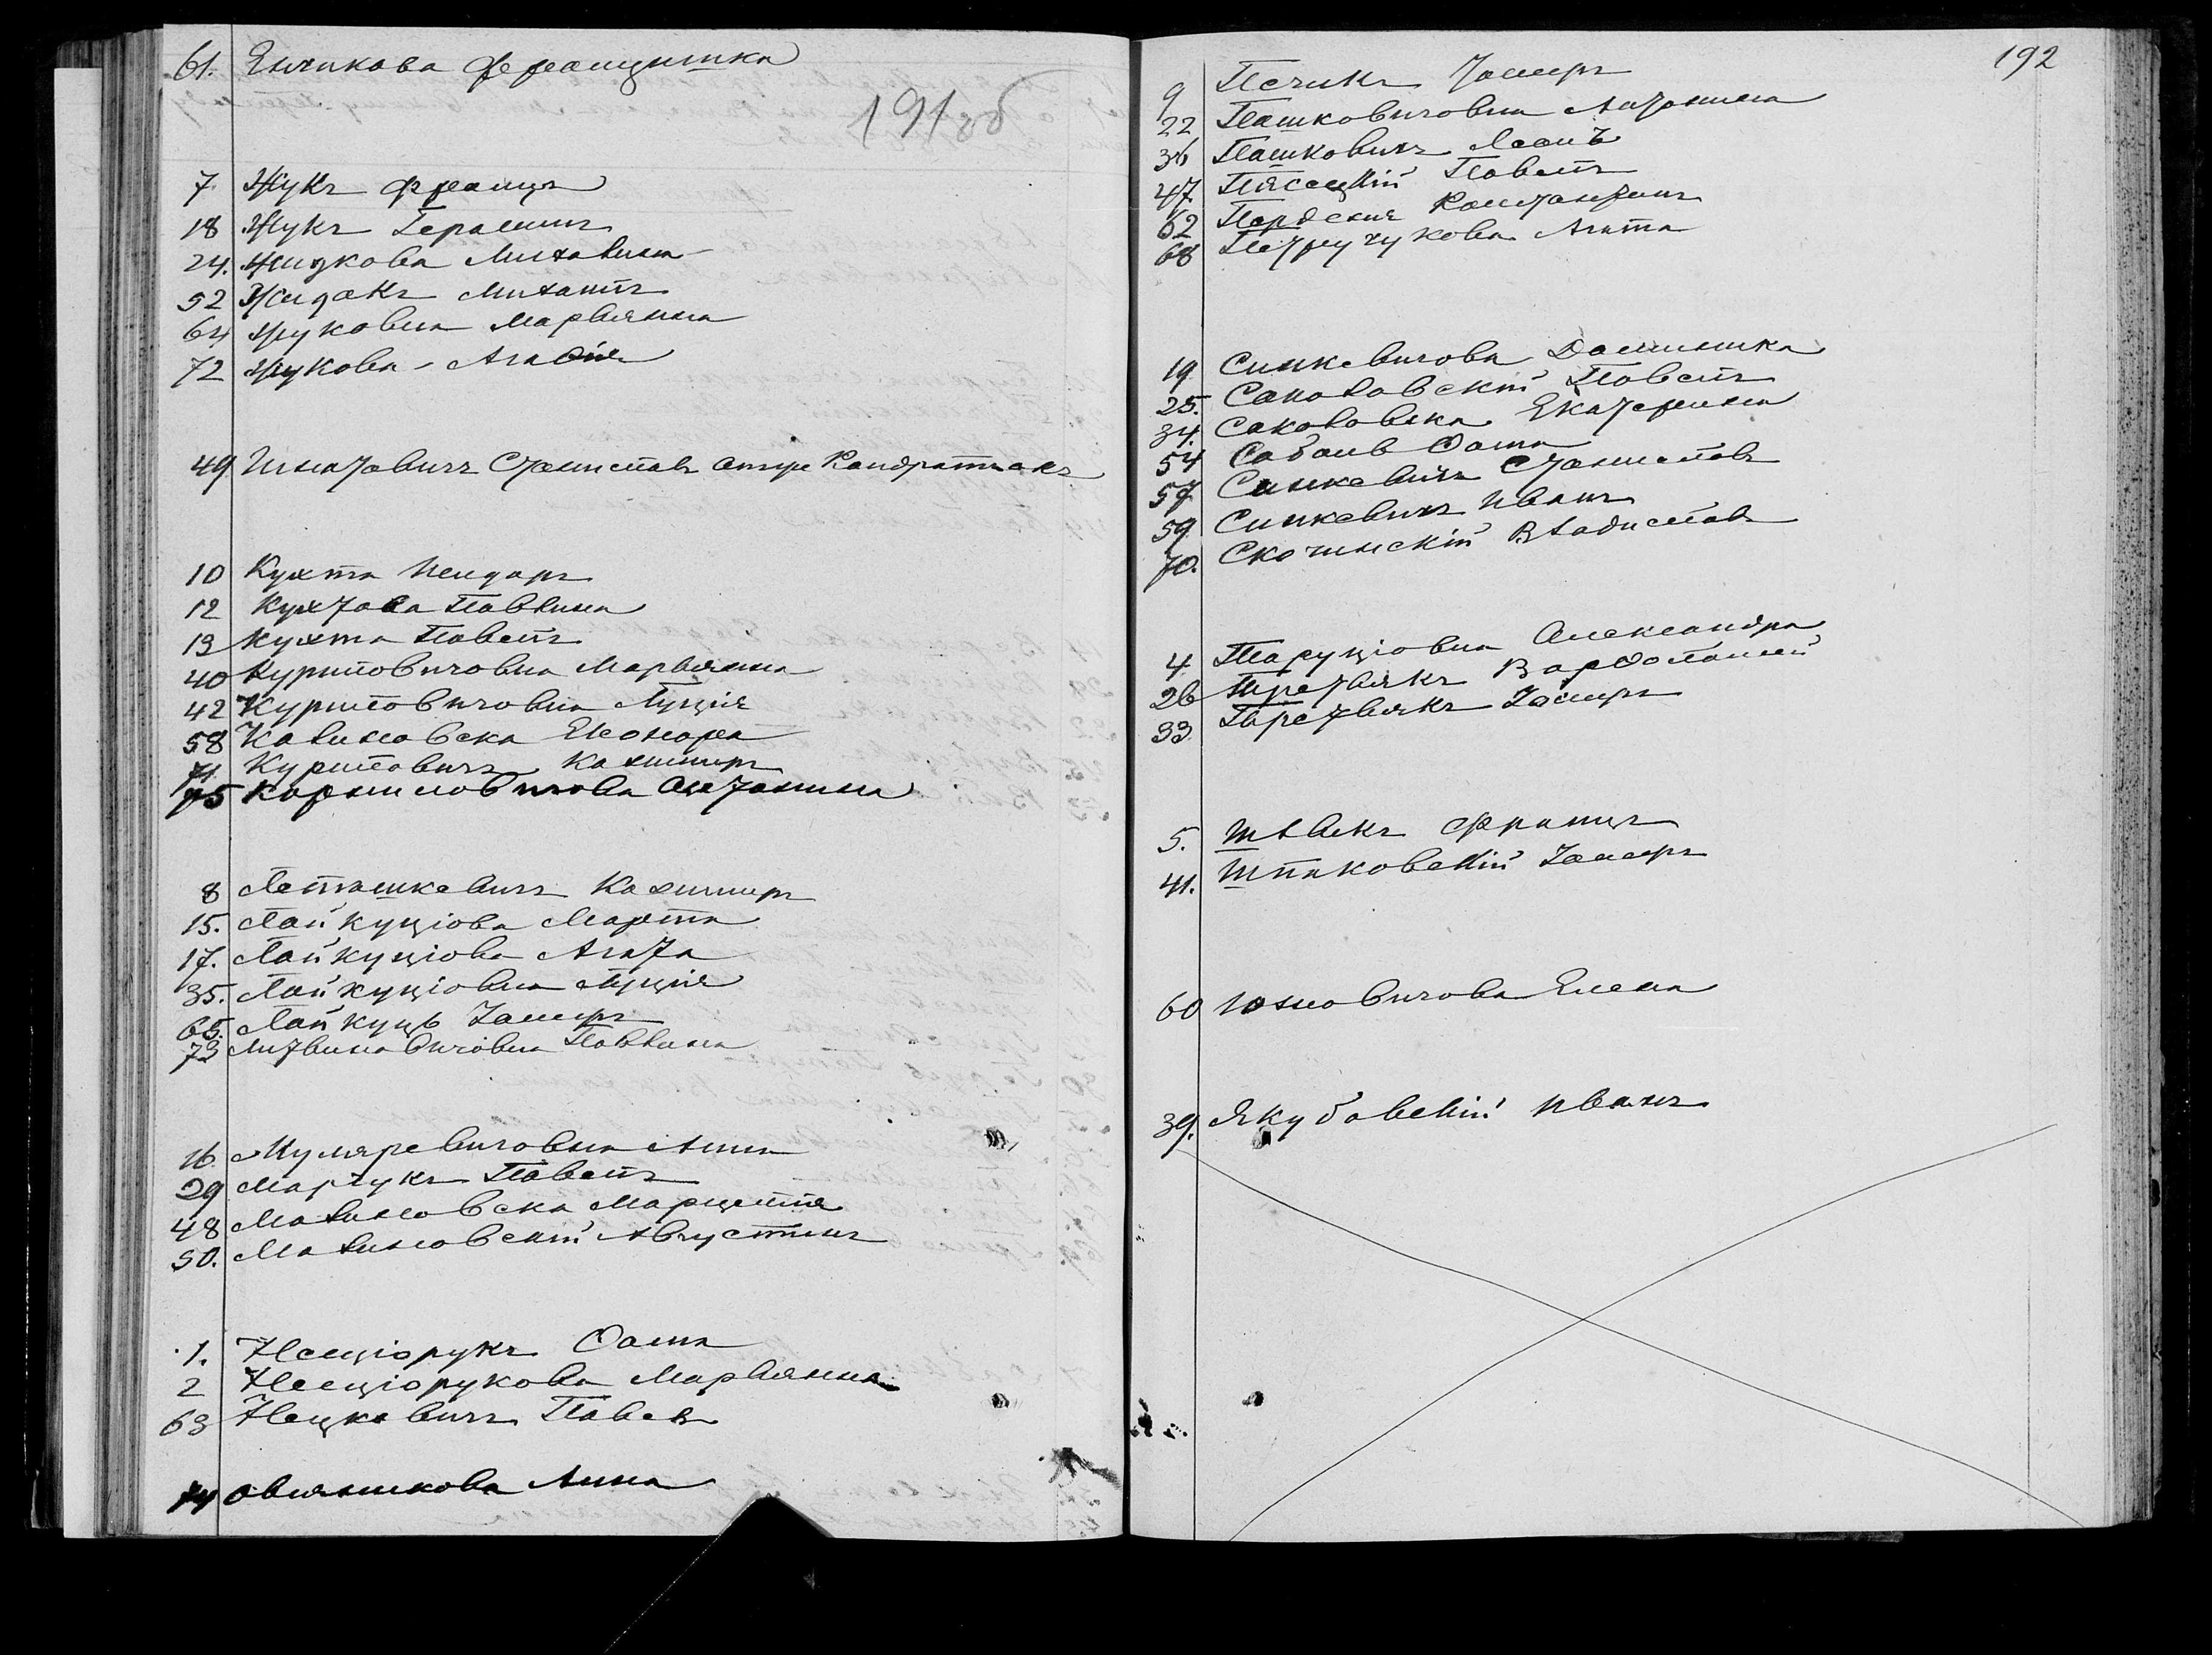 61. Енчикова Францишка
191 об
7 Жукъ Францъ
18 Жукъ Герасимъ
24. Жидкова Михалина
52 Жидокъ Михаилъ
64 Жуковна Марьянна
72 Жукова - Агафія
49 Игнатовичъ Станиславъ Кондратюкъ
10 Кухта Исидоръ
12 Кухтова Павлина
13 Кухта Павелъ
40 Куриловичовна Марьянна
42 Куриловичовна Луція
58 Калиновска Элеонора
71 Куриловичъ Казимиръ
75 Корниловичова Антонина
8 Леташкевичъ Казимиръ
15. Лайкуціова Марта
17. Лайкуціова Агата
35. Лайкуціовна Луція
65. Лайкуць
73 Литвиновичовна Павлина
16. Муляревичовна Анна
29 Марчукъ Павелъ
48 Малиновска Марцелля
50. Малиновскій Августинъ
1. Несціорукъ Фома
2 Несціорукова Марьянна
63 Нецкевичъ Павелъ
74 Овсянникова Анна
192
9
22 Пашковичовна Антонина
36 Пашковичъ Леонъ
47 Пясецкій Павелъ
62 Константинъ
68 Петручукова Агата
19. Синкевичова Доминика
25. Соколовскій Павелъ
34. Соколовска Екатерина
54 Фома
57 Синкевичъ Станиславъ
59 Синкевичъ Иванъ
70. Скочинскій Владиславъ
4 Таруціовна Александра
26 Третьякъ Варфоломей
33 Третьякъ
5. Шлыкъ Францъ
41. Шпаковскій
60 Юхновичова Елена
39. Якубовскій Иванъ